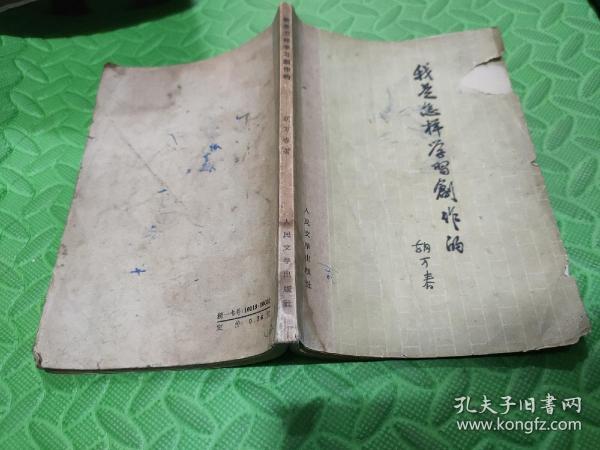 我是怎样学習創作的
胡万春
人民文学出版社
我是怎样学习創作的
胡万春著
人民文学出版社
統一书号:10019·
定价:0.26元
孔夫子旧书网
www.kongfz.com